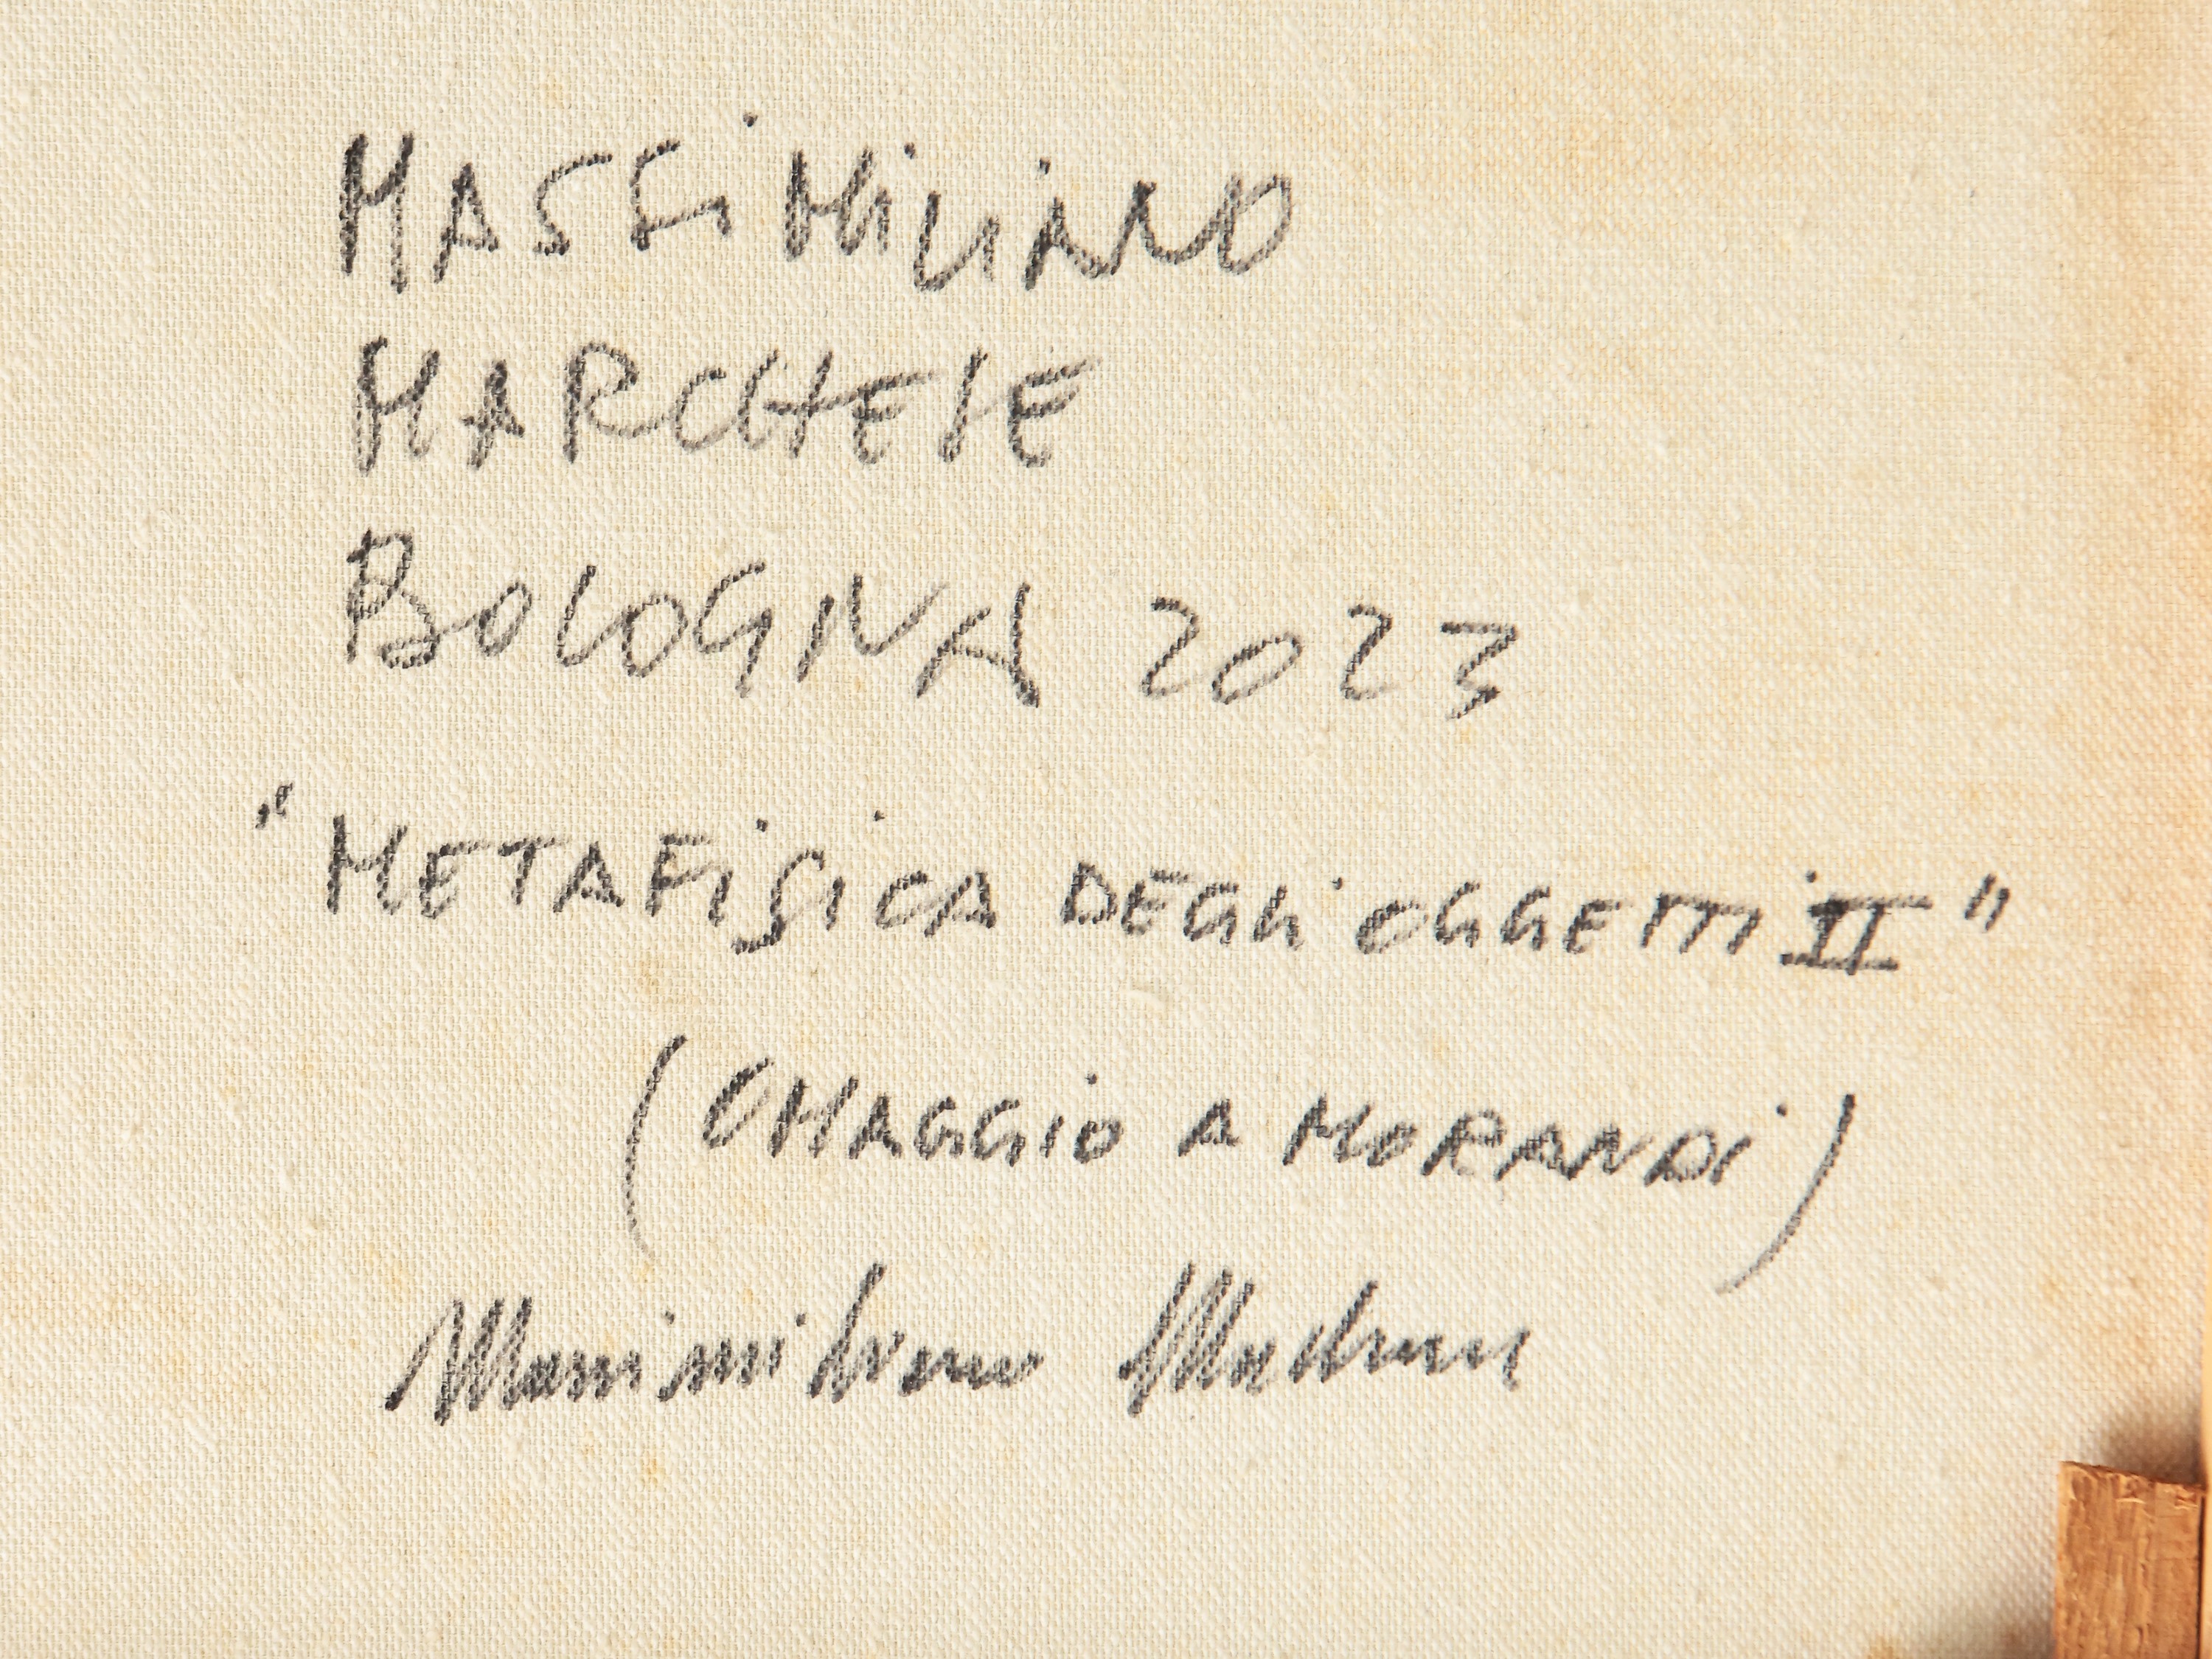 MASSiMiLiANO
MARCHESE
BOLOGNA 2023
"METAFiSiCA DEGLi OGGETTi II"
(OMAGGiO A MORANDi)
Massimiliano Marchese